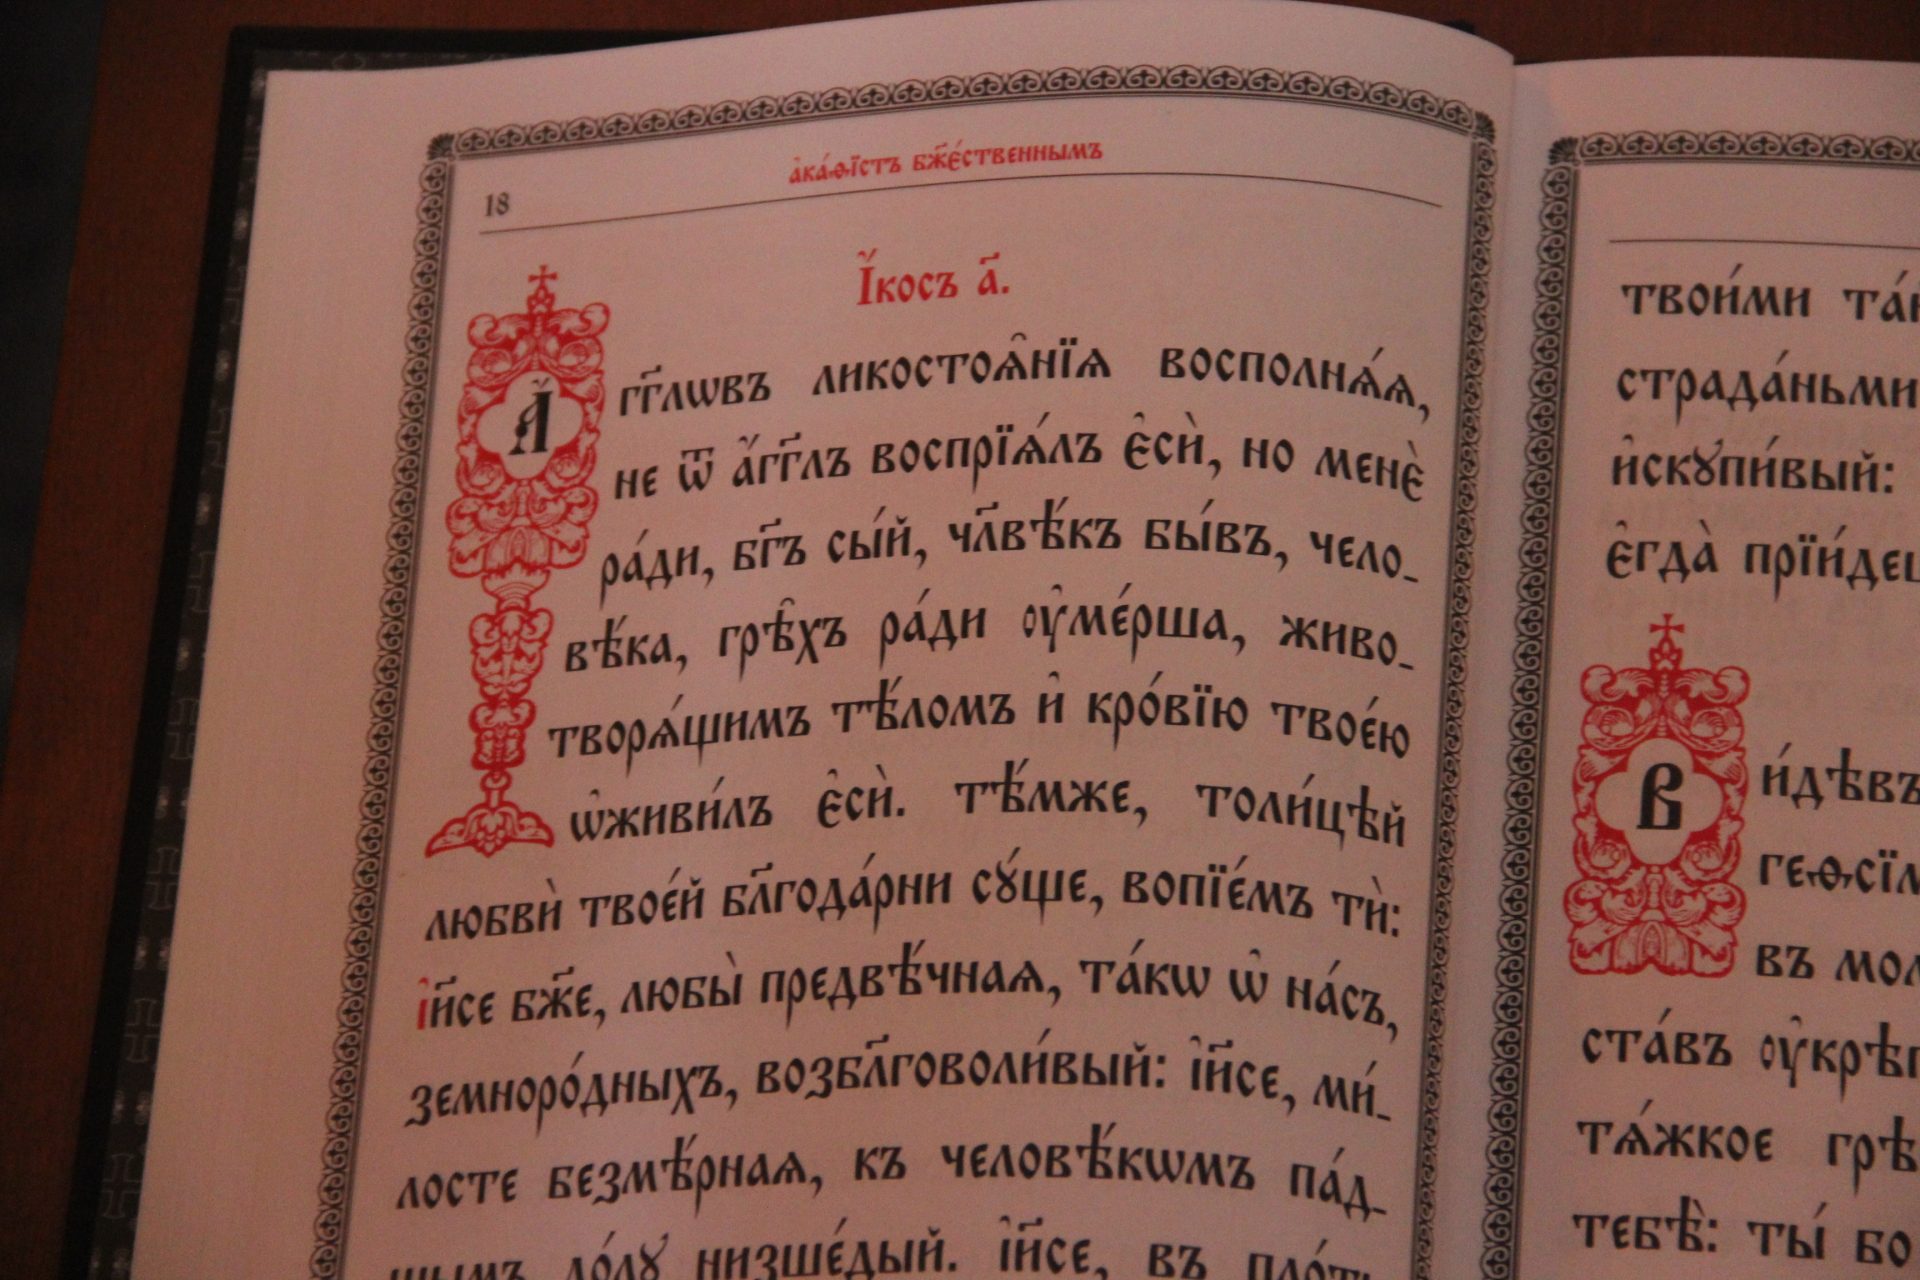 а҆ка́ѳїстъ бж҃е́ственнымъ
18
І҆́косъ а҃.
А҆́гг҃лѡвъ ликостоѧ̑нїѧ восполнѧ́ѧ,
не ѿ а҆́гг҃лъ воспрїѧ́лъ є҆сѝ, но менє̀
ра́ди, бг҃ъ сы́й, чл҃вѣ́къ бы́въ, чело_
вѣ́ка, грѣ̑хъ ра́ди ᲂу҆ме́рша, живо_
творѧ́щимъ тѣ́ломъ и҆ кро́вїю твое́ю
ѡ҆живи́лъ є҆сѝ. тѣ́мже, толи́цѣй
любвѝ твое́й бл҃года́рни сꙋ́ще, вопїе́мъ тѝ:
і҆и҃се бж҃е, любы̀ предвѣ́чнаѧ, та́кѡ ѡ҆ на́съ,
земноро́дныхъ, возбл҃говоли́вый: і҆и҃се, ми́_
лосте безмѣ́рнаѧ, къ человѣ́кѡмъ па́д_
шымъ до́лꙋ низше́дый. і҆и҃се, въ пло́ть
твои́ми
страда́ньми
и҆скꙋпи́вый:
є҆гда̀
В
и́дѣвъ
въ
ста́въ
тѧ́жкое
тебѣ̀: ты́ бо